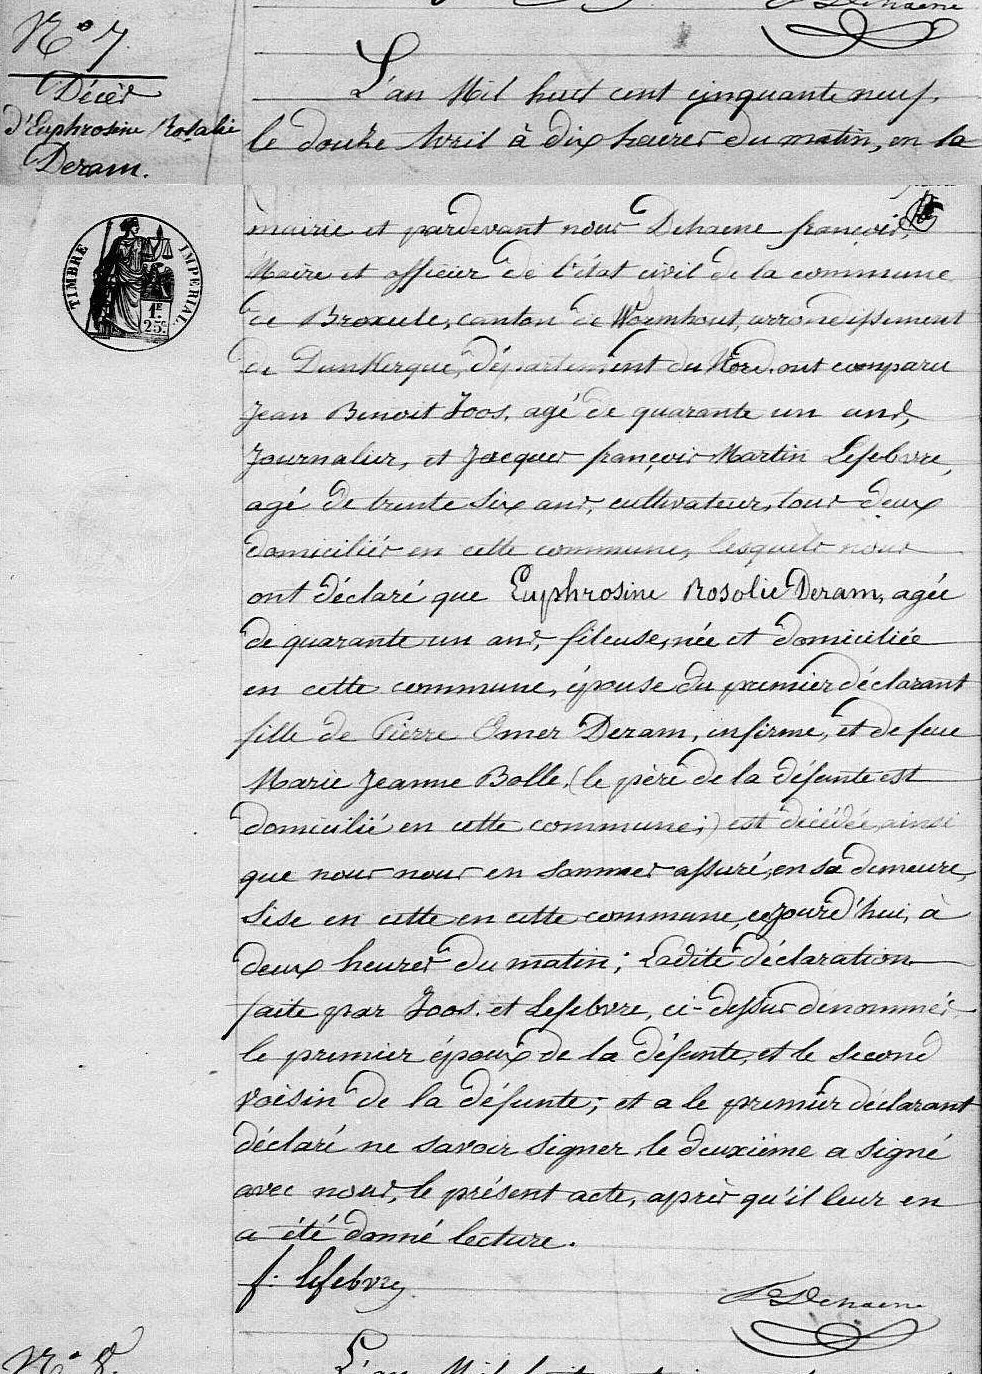 Dehaene
N° 7.
Décès
d'Euphrosine Rosalie
Deram.
L'an Mil huit cent cinquante neuf,
le douze Avril à dix heures du matin, en la
TIMBRE IMPERIAL.
1F.
25c
mairie et pardevant nous Dehaene françois,
Maire et officier de l'état civil de la commune
de Broxeele, canton de Wormhout, arrondissement
de Dunkerque, département du Nord. ont comparu
Jean Benoit Joos, agé de quarante un ans,
Journalier, et Jacques françois Martin Lefebvre,
agé de trente six ans, cultivateur, tous deux
domiciliés en cette commune, lesquels nous
ont déclaré que Euphrosine Rosalie Deram, agée
de quarante un ans, fileuse, née et domiciliée
en cette commune, épouse du premier déclarant
fille de Pierre Omer Deram, infirme, et de feue
Marie Jeanne Bolle, (le père de la défunte est
domicilié en cette commune;) est décédée, ainsi
que nous nous en sommes assuré, en sa demeure,
Sise en cette en cette commune, cejourd'hui, à
deux heures du matin; Ladite déclaration
faite par Joos. et Lefebvre, ci-dessus dénommés
le premier époux de la défunte, et le second
voisin de la défunte; et a le premier déclarant
déclaré ne savoir signer, le deuxième a signé
avec nous, le présent acte, après qu'il leur en
a été donné lecture.
f. Lefebvre
Dehaene
N° 8.
L'an Mil huit cent